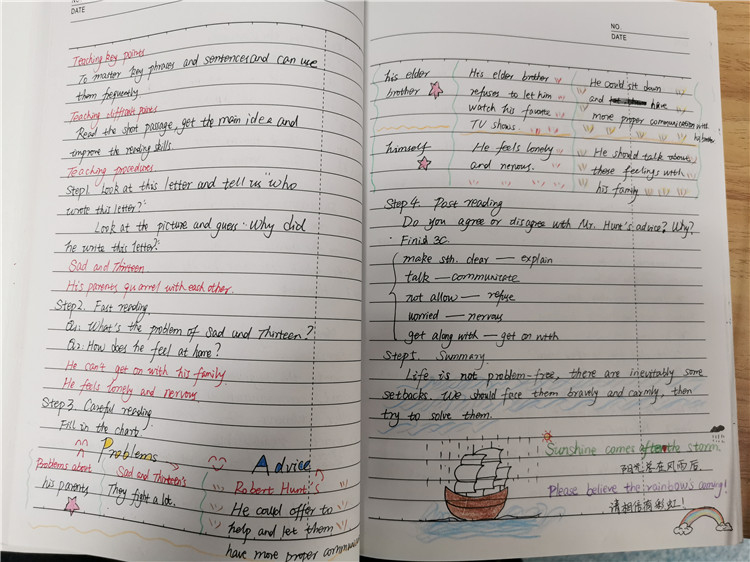 NO.
DATE
Teaching key points
To matter key phrases and sentences and can use
them frequently.
Teaching difficult points
Read the shot passage, get the main idea and
improve the reading skills.
Teaching procedures
Step1. Look at this letter and tell us "who
wrote this letter?"
Look at the picture and guess: Why did
he write this letter?
Sad and Thirteen
His parents quarrel with each other.
Step2. Fast reading.
Q1: What's the problem of Sad und Thirteen?
Q2: How does he feel at home?
He can't get on with his family.
He feels lonely and nervous.
Step 3. Careful reading
Fill in the chart.
Problems Advice
Problems about Sad and Thirteen's Robert Hunt's
his parents They fight a lot. He could offer to
help and let them
have more proper
NO.
DATE
his elder His elder brother He could sit down
brother refuses to let him and have
watch his favorite more proper communication with
TV shows. his brother
himself He feels lonely He should talk about
and nervous. these feelings with
his family
Step 4. Post reading
Do you agree or disagree with Mr. Hunt's advice? Why?
Finish 3C.
make sth. clear — explain
talk — communicate
not allow — refuse
worried — nervous
get along with — get on with
Step5. Summary
Life is not problem-free, there are inevitably some
setbacks. We should face them bravely and carmly, then
try to solve them.
Sunshine comes after th storm.
阳光总在风雨后.
Please believe the rainbow's coming!
请相信有彩虹!